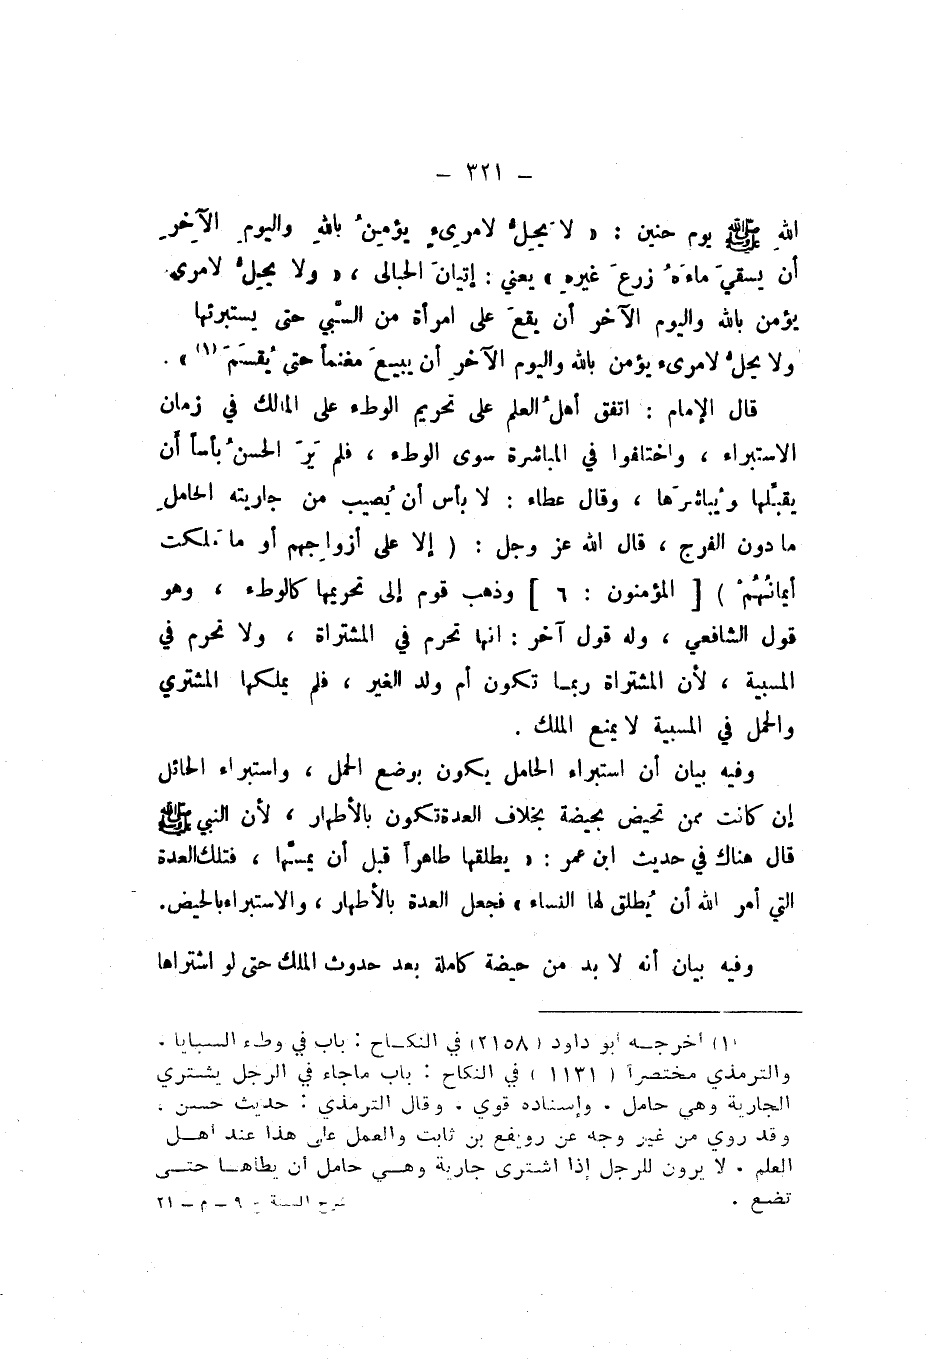 – ٣٢١ –
اللهِ ﷺ يوم حنين : « لا يَحِلُّ لامرىءٍ يؤمِنُ بالله واليومِ الآخِرِ
أن يسقيَ ماءَهُ زرعَ غيرِهِ » يعني : إتيانَ الحبالى ، « ولا يحِلُّ لامرىء
يؤمن بالله واليوم الآخر أن يقعَ على امرأة من السَّبي حتى يستبرئها
ولا يحلُّ لامرىء يؤمن بالله واليوم الآخرِ أن يبيعَ مغنماً حتى يُقسَمَ (١) » .
قال الإمام : اتفق أهلُ العلم على تحريم الوطء على المالك في زمان
الاستبراء ، واختلفوا في المباشرة سوى الوطء ، فلم يَرَ الحسنُ بأساً أن
يقبِّلها ويُباشرَها ، وقال عطاء : لا بأس أن يُصيب من جاريته الحاملِ
ما دون الفرج ، قال الله عز وجل : ( إلا على أزواجِهم أو ما مَلكت
أيمانُهُم ) [ المؤمنون : ٦ ] وذهب قوم إلى تحريمها كالوطء ، وهو
قول الشافعي ، وله قول آخر : انها تحرم في المشتراة ، ولا تحرم في
المسبية ، لأن المشتراة ربما تكون أم ولد الغير ، فلم يملكها المشتري
والحمل في المسبية لا يمنع الملك .
وفيه بيان أن استبراء الحامل يكون بوضع الحمل ، واستبراء الحائل
إن كانت ممن تحيض بحيضة بخلاف العدة تكون بالأطهار ، لأن النبي ﷺ
قال هناك في حديث ابن عمر : « يطلقها طاهراً قبل أن يمسَّها ، فتلك العدة
التي أمر الله أن يُطلق لها النساء » فجعل العدة بالأطهار ، والاستبراء بالحيض.
وفيه بيان أنه لا بد من حيضة كاملة بعد حدوث الملك حتى لو اشتراها
(١) أخرجه أبو داود (٢١٥٨) في النكاح : باب في وطء السبايا .
والترمذي مختصراً ( ١١٣١ ) في النكاح : باب ماجاء في الرجل يشتري
الجارية وهي حامل . وإسناده قوي . وقال الترمذي : حديث حسن .
وقد روي من غير وجه عن رويفع بن ثابت والعمل على هذا عند أهل
العلم . لا يرون للرجل إذا اشترى جارية وهي حامل أن يطأها حتى
تضع .
شرح السنة ج ٩ – م – ٢١